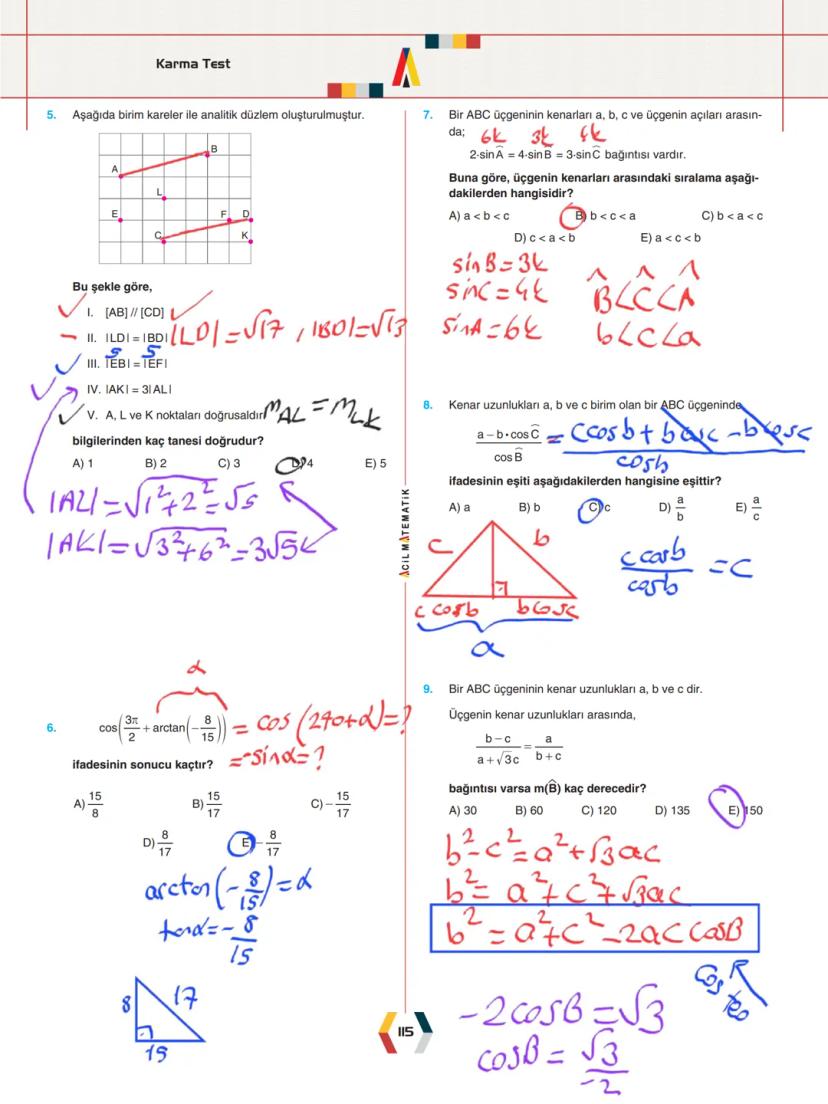 Karma Test
5. Aşağıda birim kareler ile analitik düzlem oluşturulmuştur.
B
A
L
E
F D
C
K
Bu şekle göre,
I. [AB] // [CD]
II. |LD| = |BD| |LD| = √17 , |BD| = √13
5 5
III. |EB| = |EF|
IV. |AK| = 3|AL|
V. A, L ve K noktaları doğrusaldır. mAL = mLK
bilgilerinden kaç tanesi doğrudur?
A) 1 B) 2 C) 3 D) 4 E) 5
|AL| = √1²+2² = √5
|AK| = √3²+6² = 3√5
α
6. cos(3π/2 + arctan(-8/15)) = cos(270+α) = ?
ifadesinin sonucu kaçtır? = -sinα = ?
A) 15/8 B) 15/17 C) -15/17
D) 8/17 E) -8/17
arctan(-8/15) = α
tanα = -8/15
8 17
15
ACİL MATEMATİK
7. Bir ABC üçgeninin kenarları a, b, c ve üçgenin açıları arasın-
da; 6k 3k 4k
2·sinÂ = 4·sinB̂ = 3·sinĈ bağıntısı vardır.
Buna göre, üçgenin kenarları arasındaki sıralama aşağı-
dakilerden hangisidir?
A) a < b < c B) b < c < a C) b < a < c
D) c < a < b E) a < c < b
sinB = 3k
sinC = 4k B̂<Ĉ<Â
sinA = 6k b<c<a
8. Kenar uzunlukları a, b ve c birim olan bir ABC üçgeninde,
a – b·cosĈ / cosB̂ = ccosb + bcosc - bcosc / cosb
ifadesinin eşiti aşağıdakilerden hangisine eşittir?
A) a B) b C) c D) a/b E) a/c
c b
ccosb / cosb = c
c cosb bcosc
a
9. Bir ABC üçgeninin kenar uzunlukları a, b ve c dir.
Üçgenin kenar uzunlukları arasında,
b – c / a + √3c = a / b + c
bağıntısı varsa m(B̂) kaç derecedir?
A) 30 B) 60 C) 120 D) 135 E) 150
b²-c² = a²+√3ac
b² = a²+c²+√3ac
b² = a²+c²-2ac cosB
cos
teo
-2cosB = √3
cosB = √3/-2
115